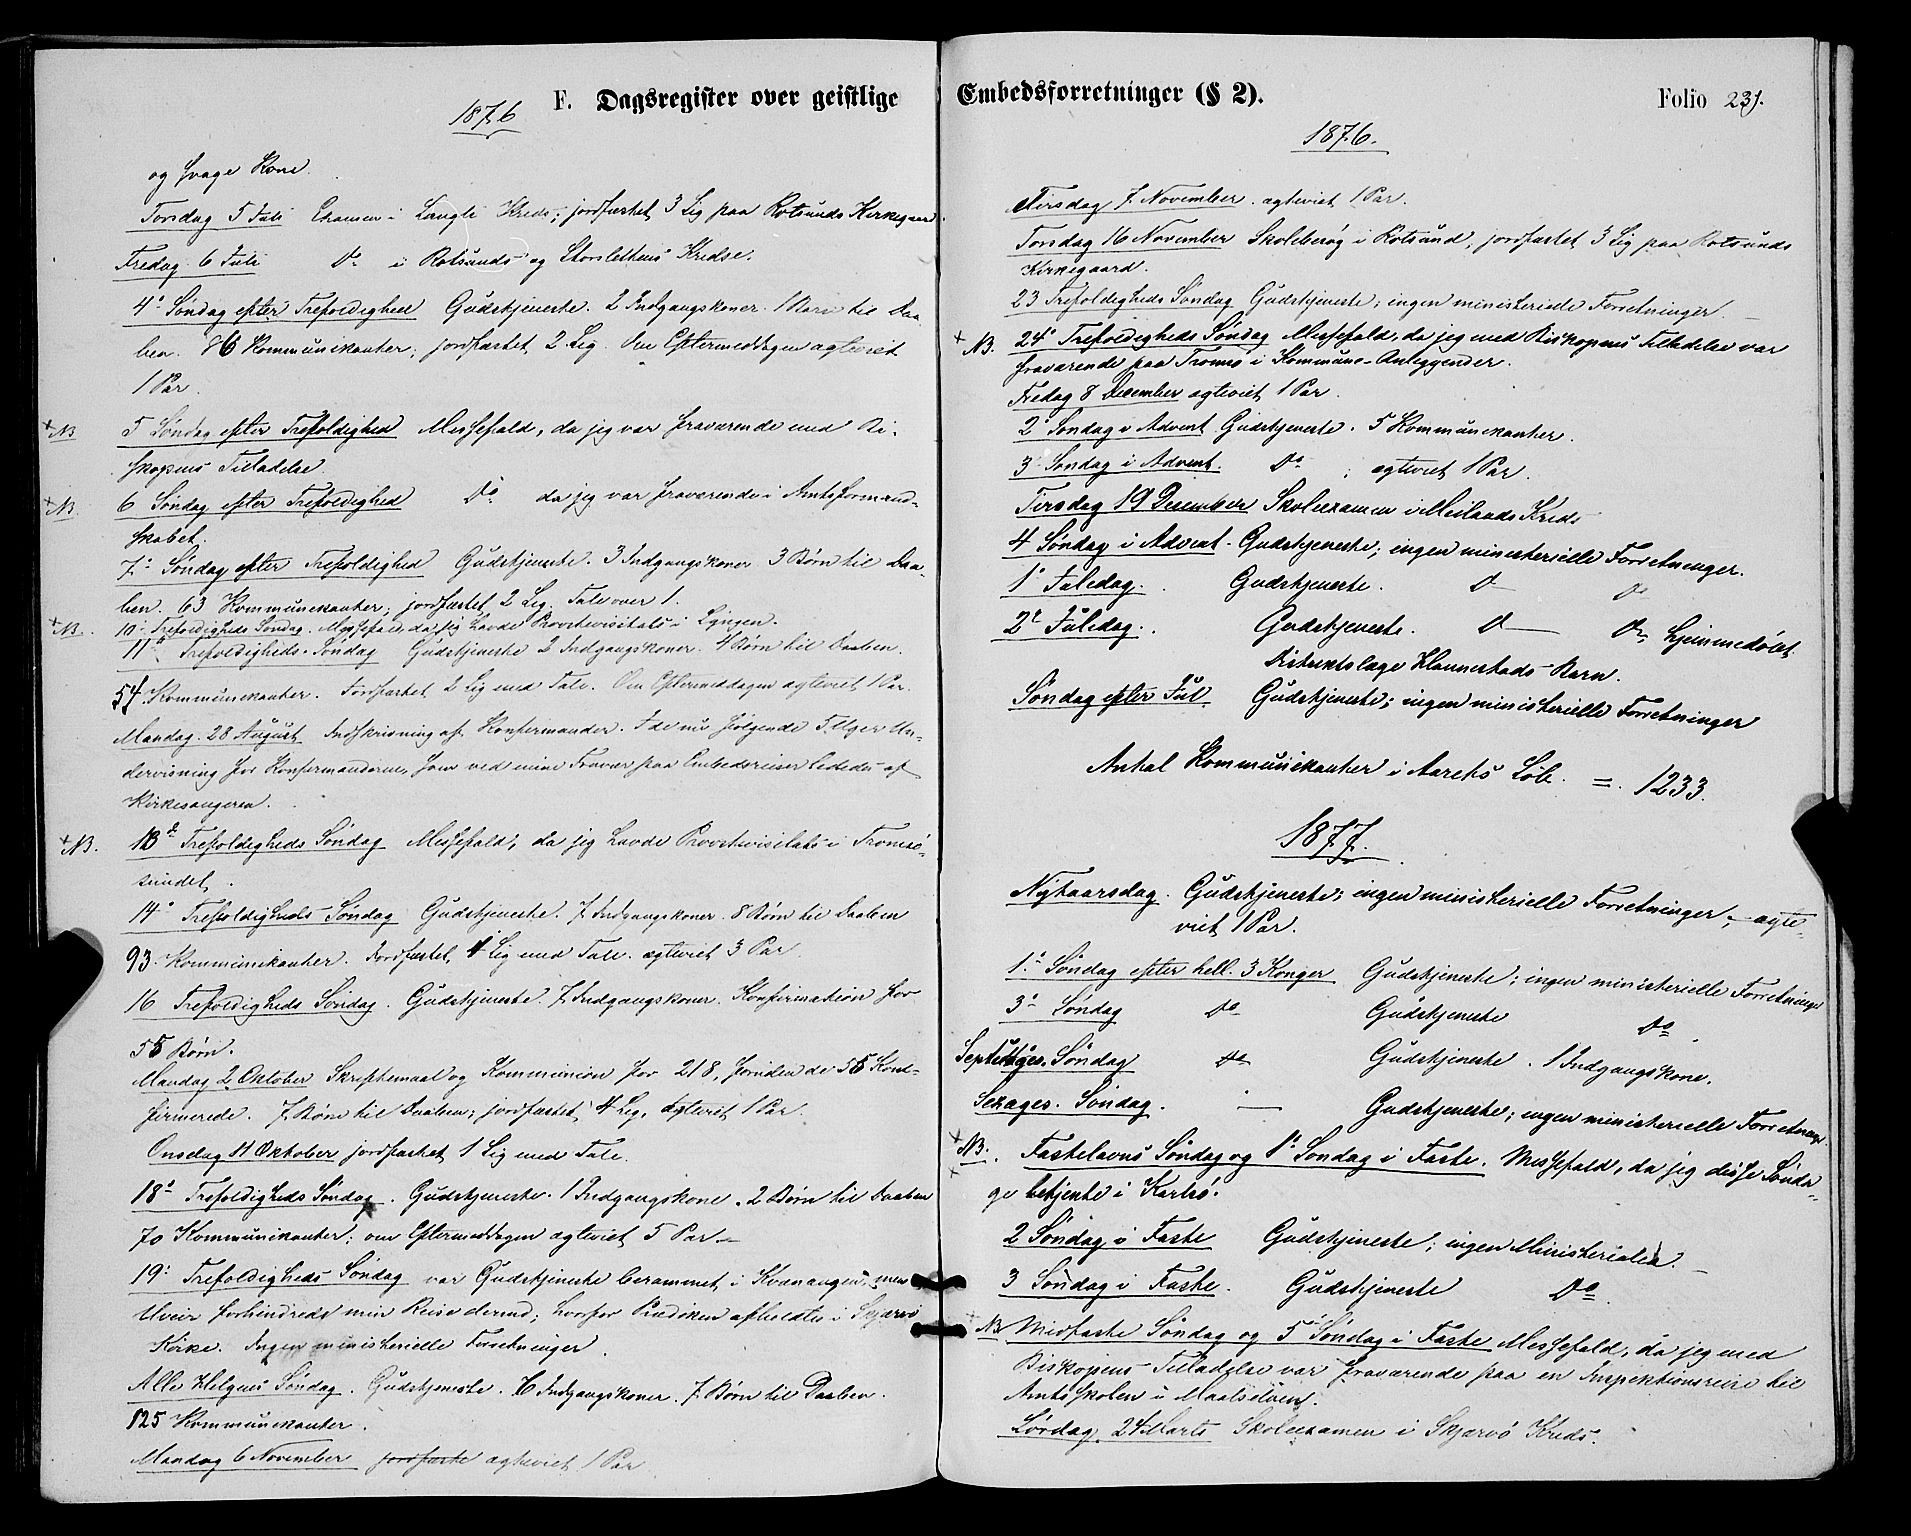 F. Dagsregister over geistlige
1876
og svage Kone.
Torsdag 5 Juli Examen i Langli Kreds; jordfæstet 3 Lig paa Rotsunds Kirkegaard.
Fredag 6 Juli Do i Rotsunds og Storslettens Kredse.
4de Søndag efter Trefoldighed Gudstjeneste. 2 Indgangskoner. 1 Barn til Daa-
ben. 86 Kommunikanter; jordfæstet 2 Lig. Om Eftermiddagen ægteviet
1 Par.
+ NB 5 Søndag efter Trefoldighed Messefald, da jeg var fraværende med Bi-
skopens Tilladelse.
+ NB. 6 Søndag efter Trefoldighed Do da jeg var fraværende i Amtsformand-
skabet.
7de Søndag efter Trefoldighed Gudstjeneste. 3 Indgangskoner 3 Børn til Daa-
ben. 63 Kommunikanter; jordfæstet 2 Lig. Tale over 1.
+ NB. 10de Trefoldigheds Søndag. Messefald, da jeg havde Provstevisitats i Lyngen.
11te Trefoldigheds Søndag Gudstjeneste 2 Indgangskoner. 4 Børn til Daaben.
54 Kommunikanter. Jordfæstet 2 Lig med Tale. Om Eftermiddagen ægteviet 1 Par.
Mandag 28 August Indskrivning af Konfirmander. I de nu følgende Uger Un-
dervisning for Konfirmanderne, som ved mine Fravær paa Embedsreiser lededes af
Kirkesangeren.
+ NB. 13de Trefoldigheds Søndag Messefald, da jeg havde Provstevisitats i Tromsø-
sundet.
14de Trefoldigheds Søndag Gudstjeneste. 7 Indgangskoner. 8 Børn til Daaben
93 Kommunikanter. Jordfæstet 4 Lig med Tale. ægteviet 3 Par.
16 Trefoldigheds Søndag. Gudstjeneste. 7 Indgangskoner. Konfirmation for
55 Børn.
Mandag 2 Oktober Skriftemaal og Kommunion for 218, foruden de 55 Kon-
firmerede. 7 Børn til Daaben; jordfæstet 4 Lig, ægteviet 1 Par.
Onsdag 11 Oktober jordfæstet 1 Lig med Tale.
18de Trefoldigheds Søndag. Gudstjeneste. 1 Indgangskone. 2 Børn til Daaben
70 Kommunikanter; om Eftermiddagen ægteviet 5 Par.
19de Trefoldigheds Søndag var Gudstjeneste berammet i Kvænangen, men
Uveir forhindrede min Reise derind; hvorfor Prædiken afholdtes i Skjærvø
Kirke. Ingen ministerielle Forretninger.
Alle Helgens Søndag. Gudstjeneste. 6 Indgangskoner. 7 Børn til Daaben.
125 Kommunikanter.
Mandag 6 November jordfæste ægteviet 1 Par
Embedsforretninger (§ 2).
Folio 231.
1876.
Tirsdag 7 November. ægteviet 1 Par.
Torsdag 16 November Skolebesøg i Rotsund, jordfæstet 3 Lig paa Rotsunds
Kirkegaard.
23 Trefoldigheds Søndag Gudstjeneste; ingen ministerielle Forretninger.
+ NB. 24de Trefoldigheds Søndag Messefald, da jeg med Biskopens Tilladelse var
fraværende paa Tromsø i Kommune-Anliggender.
Fredag 8 December ægteviet 1 Par.
2de Søndag i Advent Gudstjeneste. 5 Kommunikanter.
3 Søndag i Advent. Do ; ægteviet 1 Par.
Tirsdag 19 December Skoleexamen i Meilands Kreds
4 Søndag i Advent. Gudstjeneste; ingen ministerielle Forretninger.
1ste Juledag. Gudstjeneste. Do Do
2den Juledag. Gudstjeneste. Do Do, hjemmedøbt
Distriktslæge Hannestads Barn.
Søndag efter Jul Gudstjeneste; ingen ministerielle Forretninger
Antal Kommunikanter i Aarets Løb. = 1233.
1877.
Nytaarsdag. Gudstjeneste; ingen ministerielle Forretninger; ægte-
viet 1 Par.
1ste Søndag efter hell. 3 Konger Gudstjeneste; ingen ministerielle Forretninger
3de Søndag Do Gudstjeneste Do
Septuages. Søndag Do Gudstjeneste. 1 Indgangskone.
Sexages. Søndag. — Gudstjeneste; ingen ministerielle Forretninger
+ NB. Fastelavns Søndag og 1ste Søndag i Faste. Messefald, da jeg disse Sønda-
ge betjente i Karlsø.
2 Søndag i Faste Gudstjeneste; ingen Ministerialia.
3 Søndag i Faste. Gudstjeneste Do
+ NB Midfaste Søndag og 5te Søndag i Faste Messefald, da jeg med
Biskopens Tilladelse var fraværende paa en Inspektionsreise til
Amtsskolen i Maalselven.
Lørdag 24 Marts Skoleexamen i Skjærvø Kreds.